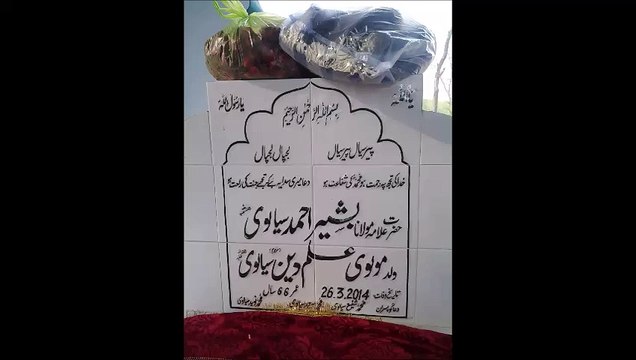 یا اللہ یا رسول اللہ
بسم اللہ الرحمٰن الرحیم
پیر سیال پیر سیال لجپال لجپال
خدا کی تجھ پہ رحمت ہو محمدؐ کی شفاعت ہو دعا میری سدا یہ ہے تجھے جنت کی راحت ہو
حضرت علامہ مولانا بشیر احمد سیالوی
ولد مولوی علم دین سیالوی
تاریخ وفات 26.3.2014 عمر 66 سال
دعاگو پسران محمد شفیع سیالوی